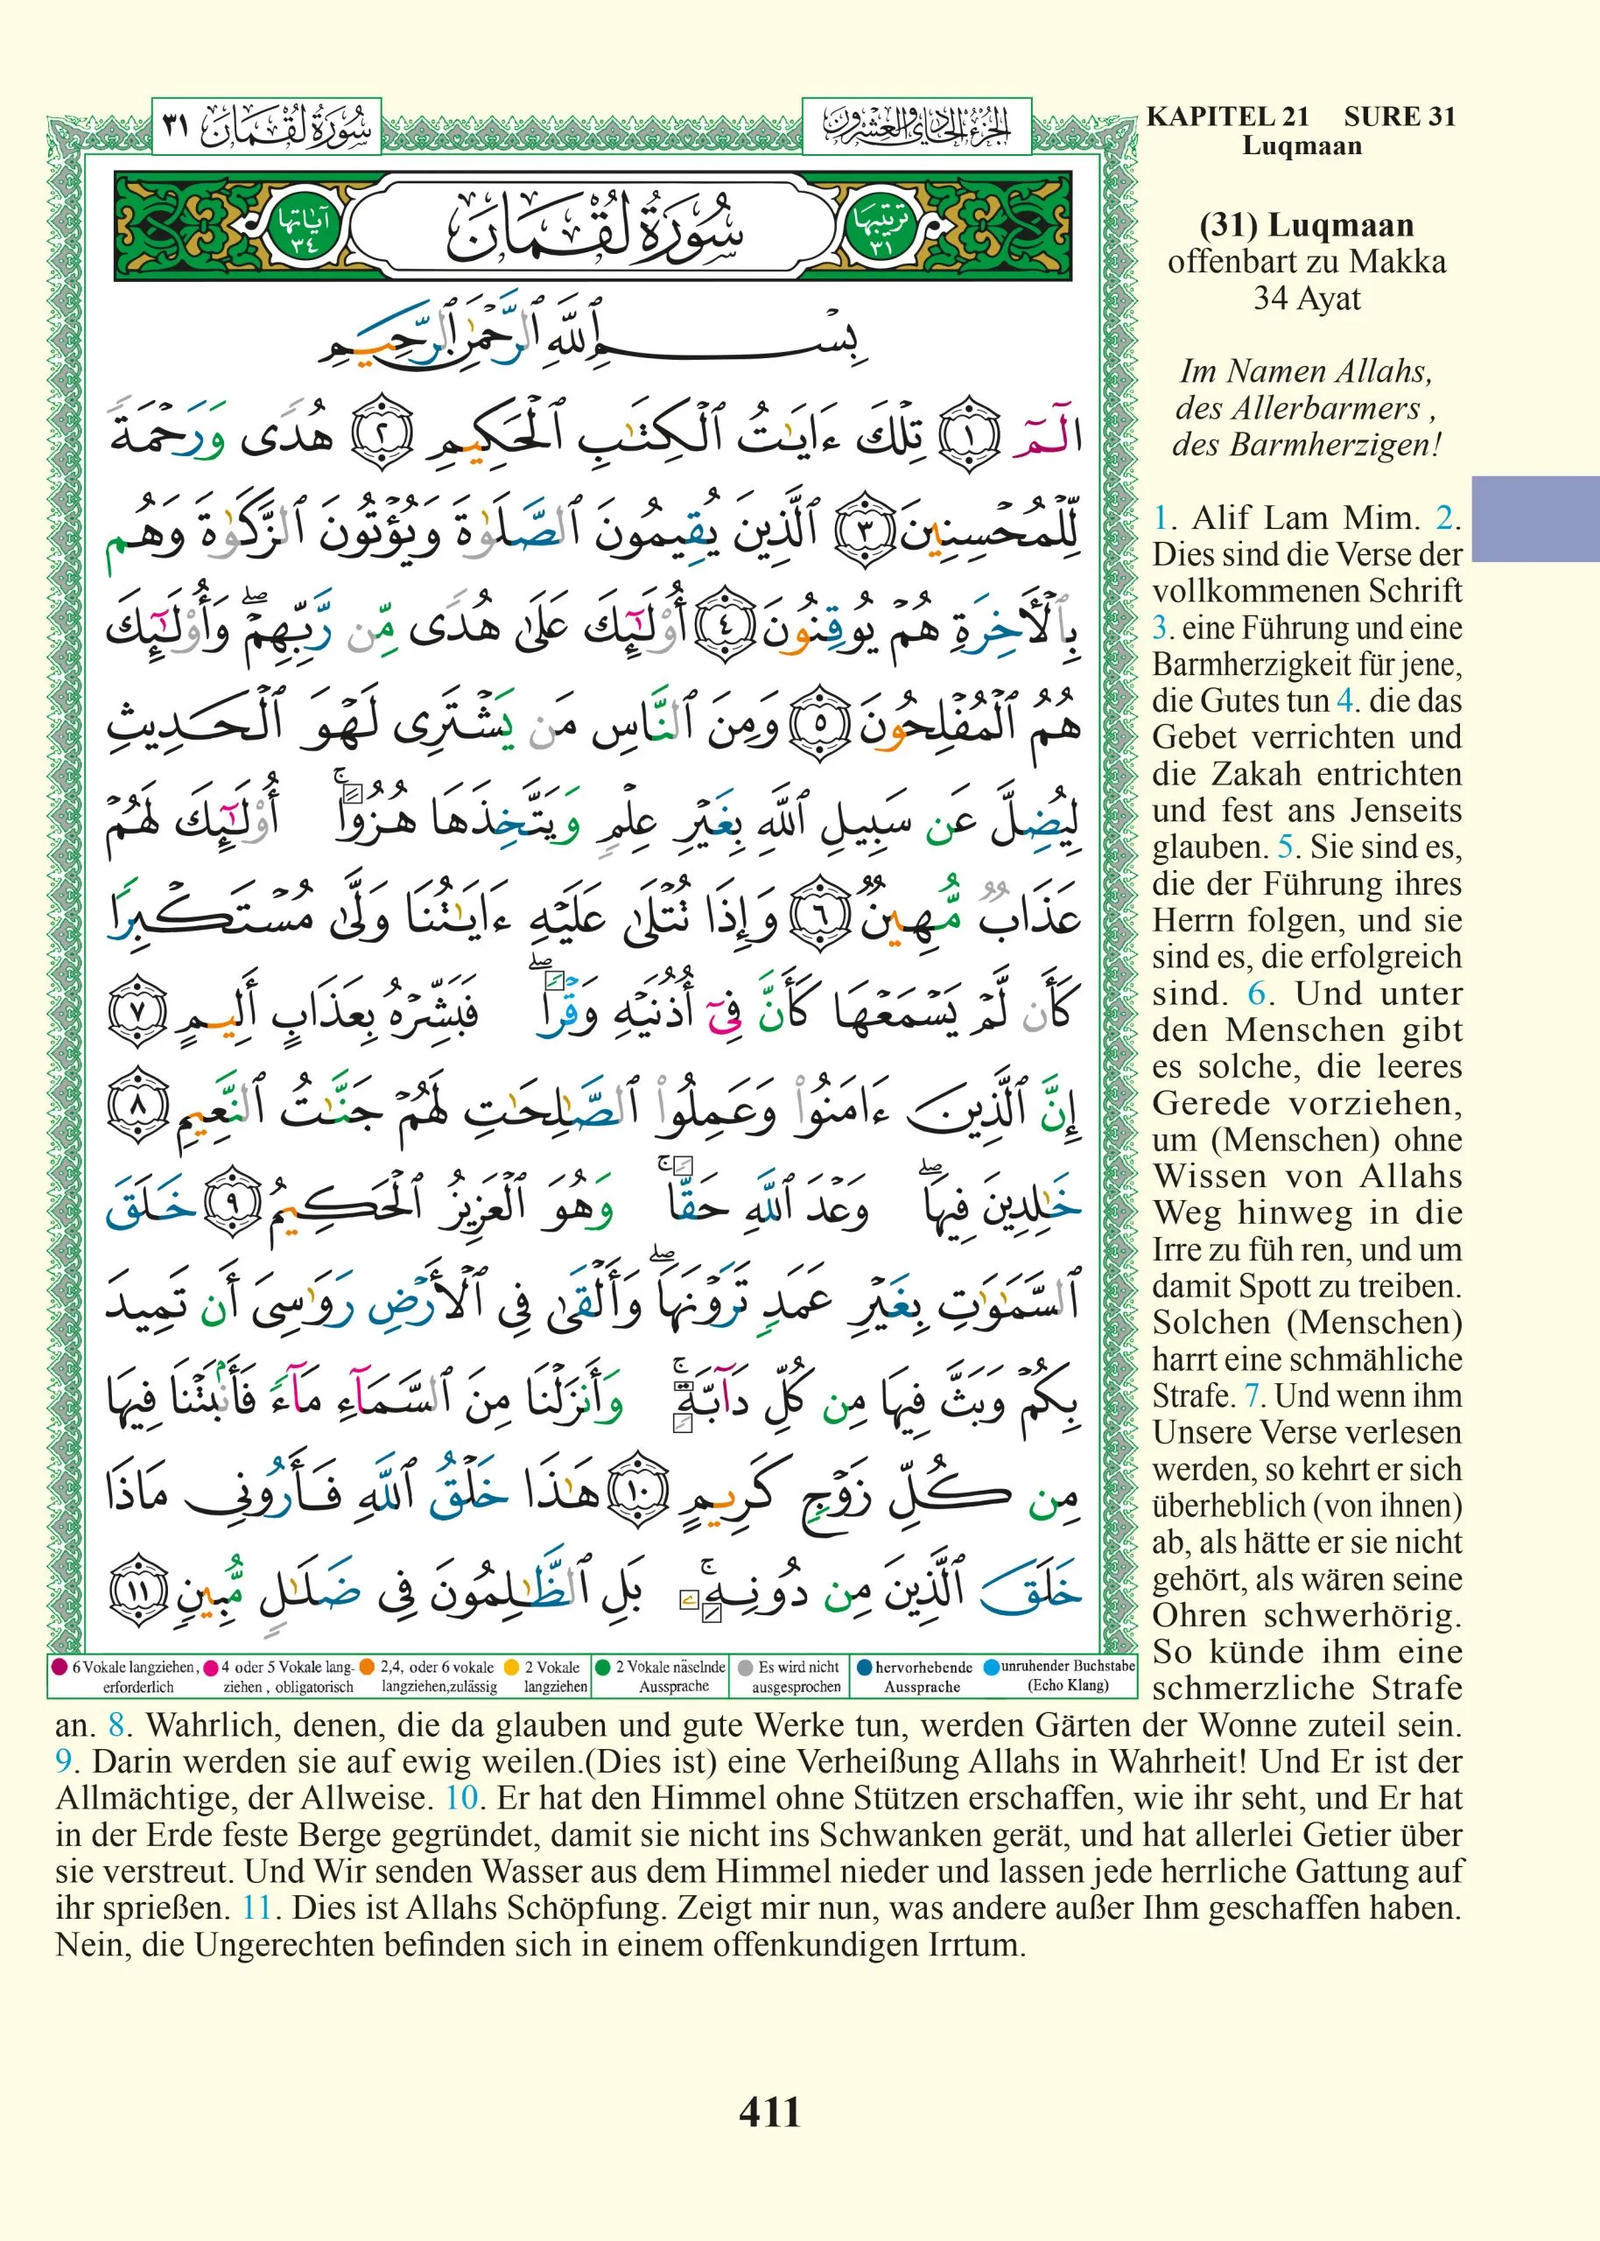 سُورَةُ لُقْمَانَ ٣١
الجُزْءُ الحَادِي وَالعِشْرُونَ
KAPITEL 21 SURE 31
Luqmaan
ترتيبها ٣١
سُورَةُ لُقْمَانَ
آياتها ٣٤
بِسْمِ ٱللَّهِ ٱلرَّحْمَٰنِ ٱلرَّحِيمِ
الٓمٓ ١ تِلْكَ ءَايَٰتُ ٱلْكِتَٰبِ ٱلْحَكِيمِ ٢ هُدًى وَرَحْمَةً
لِّلْمُحْسِنِينَ ٣ ٱلَّذِينَ يُقِيمُونَ ٱلصَّلَوٰةَ وَيُؤْتُونَ ٱلزَّكَوٰةَ وَهُم
بِٱلْأَخِرَةِ هُمْ يُوقِنُونَ ٤ أُو۟لَٰٓئِكَ عَلَىٰ هُدًى مِّن رَّبِّهِمْۖ وَأُو۟لَٰٓئِكَ
هُمُ ٱلْمُفْلِحُونَ ٥ وَمِنَ ٱلنَّاسِ مَن يَشْتَرِى لَهْوَ ٱلْحَدِيثِ
لِيُضِلَّ عَن سَبِيلِ ٱللَّهِ بِغَيْرِ عِلْمٍ وَيَتَّخِذَهَا هُزُوًاۚ أُو۟لَٰٓئِكَ لَهُمْ
عَذَابٌ مُّهِينٌ ٦ وَإِذَا تُتْلَىٰ عَلَيْهِ ءَايَٰتُنَا وَلَّىٰ مُسْتَكْبِرًا
كَأَن لَّمْ يَسْمَعْهَا كَأَنَّ فِىٓ أُذُنَيْهِ وَقْرًاۖ فَبَشِّرْهُ بِعَذَابٍ أَلِيمٍ ٧
إِنَّ ٱلَّذِينَ ءَامَنُوا۟ وَعَمِلُوا۟ ٱلصَّٰلِحَٰتِ لَهُمْ جَنَّٰتُ ٱلنَّعِيمِ ٨
خَٰلِدِينَ فِيهَاۖ وَعْدَ ٱللَّهِ حَقًّاۚ وَهُوَ ٱلْعَزِيزُ ٱلْحَكِيمُ ٩ خَلَقَ
ٱلسَّمَٰوَٰتِ بِغَيْرِ عَمَدٍ تَرَوْنَهَاۖ وَأَلْقَىٰ فِى ٱلْأَرْضِ رَوَٰسِىَ أَن تَمِيدَ
بِكُمْ وَبَثَّ فِيهَا مِن كُلِّ دَآبَّةٍۚ وَأَنزَلْنَا مِنَ ٱلسَّمَآءِ مَآءً فَأَنۢبَتْنَا فِيهَا
مِن كُلِّ زَوْجٍ كَرِيمٍ ١٠ هَٰذَا خَلْقُ ٱللَّهِ فَأَرُونِى مَاذَا
خَلَقَ ٱلَّذِينَ مِن دُونِهِۦۚ بَلِ ٱلظَّٰلِمُونَ فِى ضَلَٰلٍ مُّبِينٍ ١١
6 Vokale langziehen, erforderlich
4 oder 5 Vokale lang-ziehen , obligatorisch
2,4, oder 6 vokale langziehen,zulässig
2 Vokale langziehen
2 Vokale näselnde Aussprache
Es wird nicht ausgesprochen
hervorhebende Aussprache
unruhender Buchstabe (Echo Klang)
(31) Luqmaan
offenbart zu Makka
34 Ayat
Im Namen Allahs,
des Allerbarmers ,
des Barmherzigen!
1. Alif Lam Mim. 2.
Dies sind die Verse der
vollkommenen Schrift
3. eine Führung und eine
Barmherzigkeit für jene,
die Gutes tun 4. die das
Gebet verrichten und
die Zakah entrichten
und fest ans Jenseits
glauben. 5. Sie sind es,
die der Führung ihres
Herrn folgen, und sie
sind es, die erfolgreich
sind. 6. Und unter
den Menschen gibt
es solche, die leeres
Gerede vorziehen,
um (Menschen) ohne
Wissen von Allahs
Weg hinweg in die
Irre zu füh ren, und um
damit Spott zu treiben.
Solchen (Menschen)
harrt eine schmähliche
Strafe. 7. Und wenn ihm
Unsere Verse verlesen
werden, so kehrt er sich
überheblich (von ihnen)
ab, als hätte er sie nicht
gehört, als wären seine
Ohren schwerhörig.
So künde ihm eine
schmerzliche Strafe
an. 8. Wahrlich, denen, die da glauben und gute Werke tun, werden Gärten der Wonne zuteil sein.
9. Darin werden sie auf ewig weilen.(Dies ist) eine Verheißung Allahs in Wahrheit! Und Er ist der
Allmächtige, der Allweise. 10. Er hat den Himmel ohne Stützen erschaffen, wie ihr seht, und Er hat
in der Erde feste Berge gegründet, damit sie nicht ins Schwanken gerät, und hat allerlei Getier über
sie verstreut. Und Wir senden Wasser aus dem Himmel nieder und lassen jede herrliche Gattung auf
ihr sprießen. 11. Dies ist Allahs Schöpfung. Zeigt mir nun, was andere außer Ihm geschaffen haben.
Nein, die Ungerechten befinden sich in einem offenkundigen Irrtum.
411